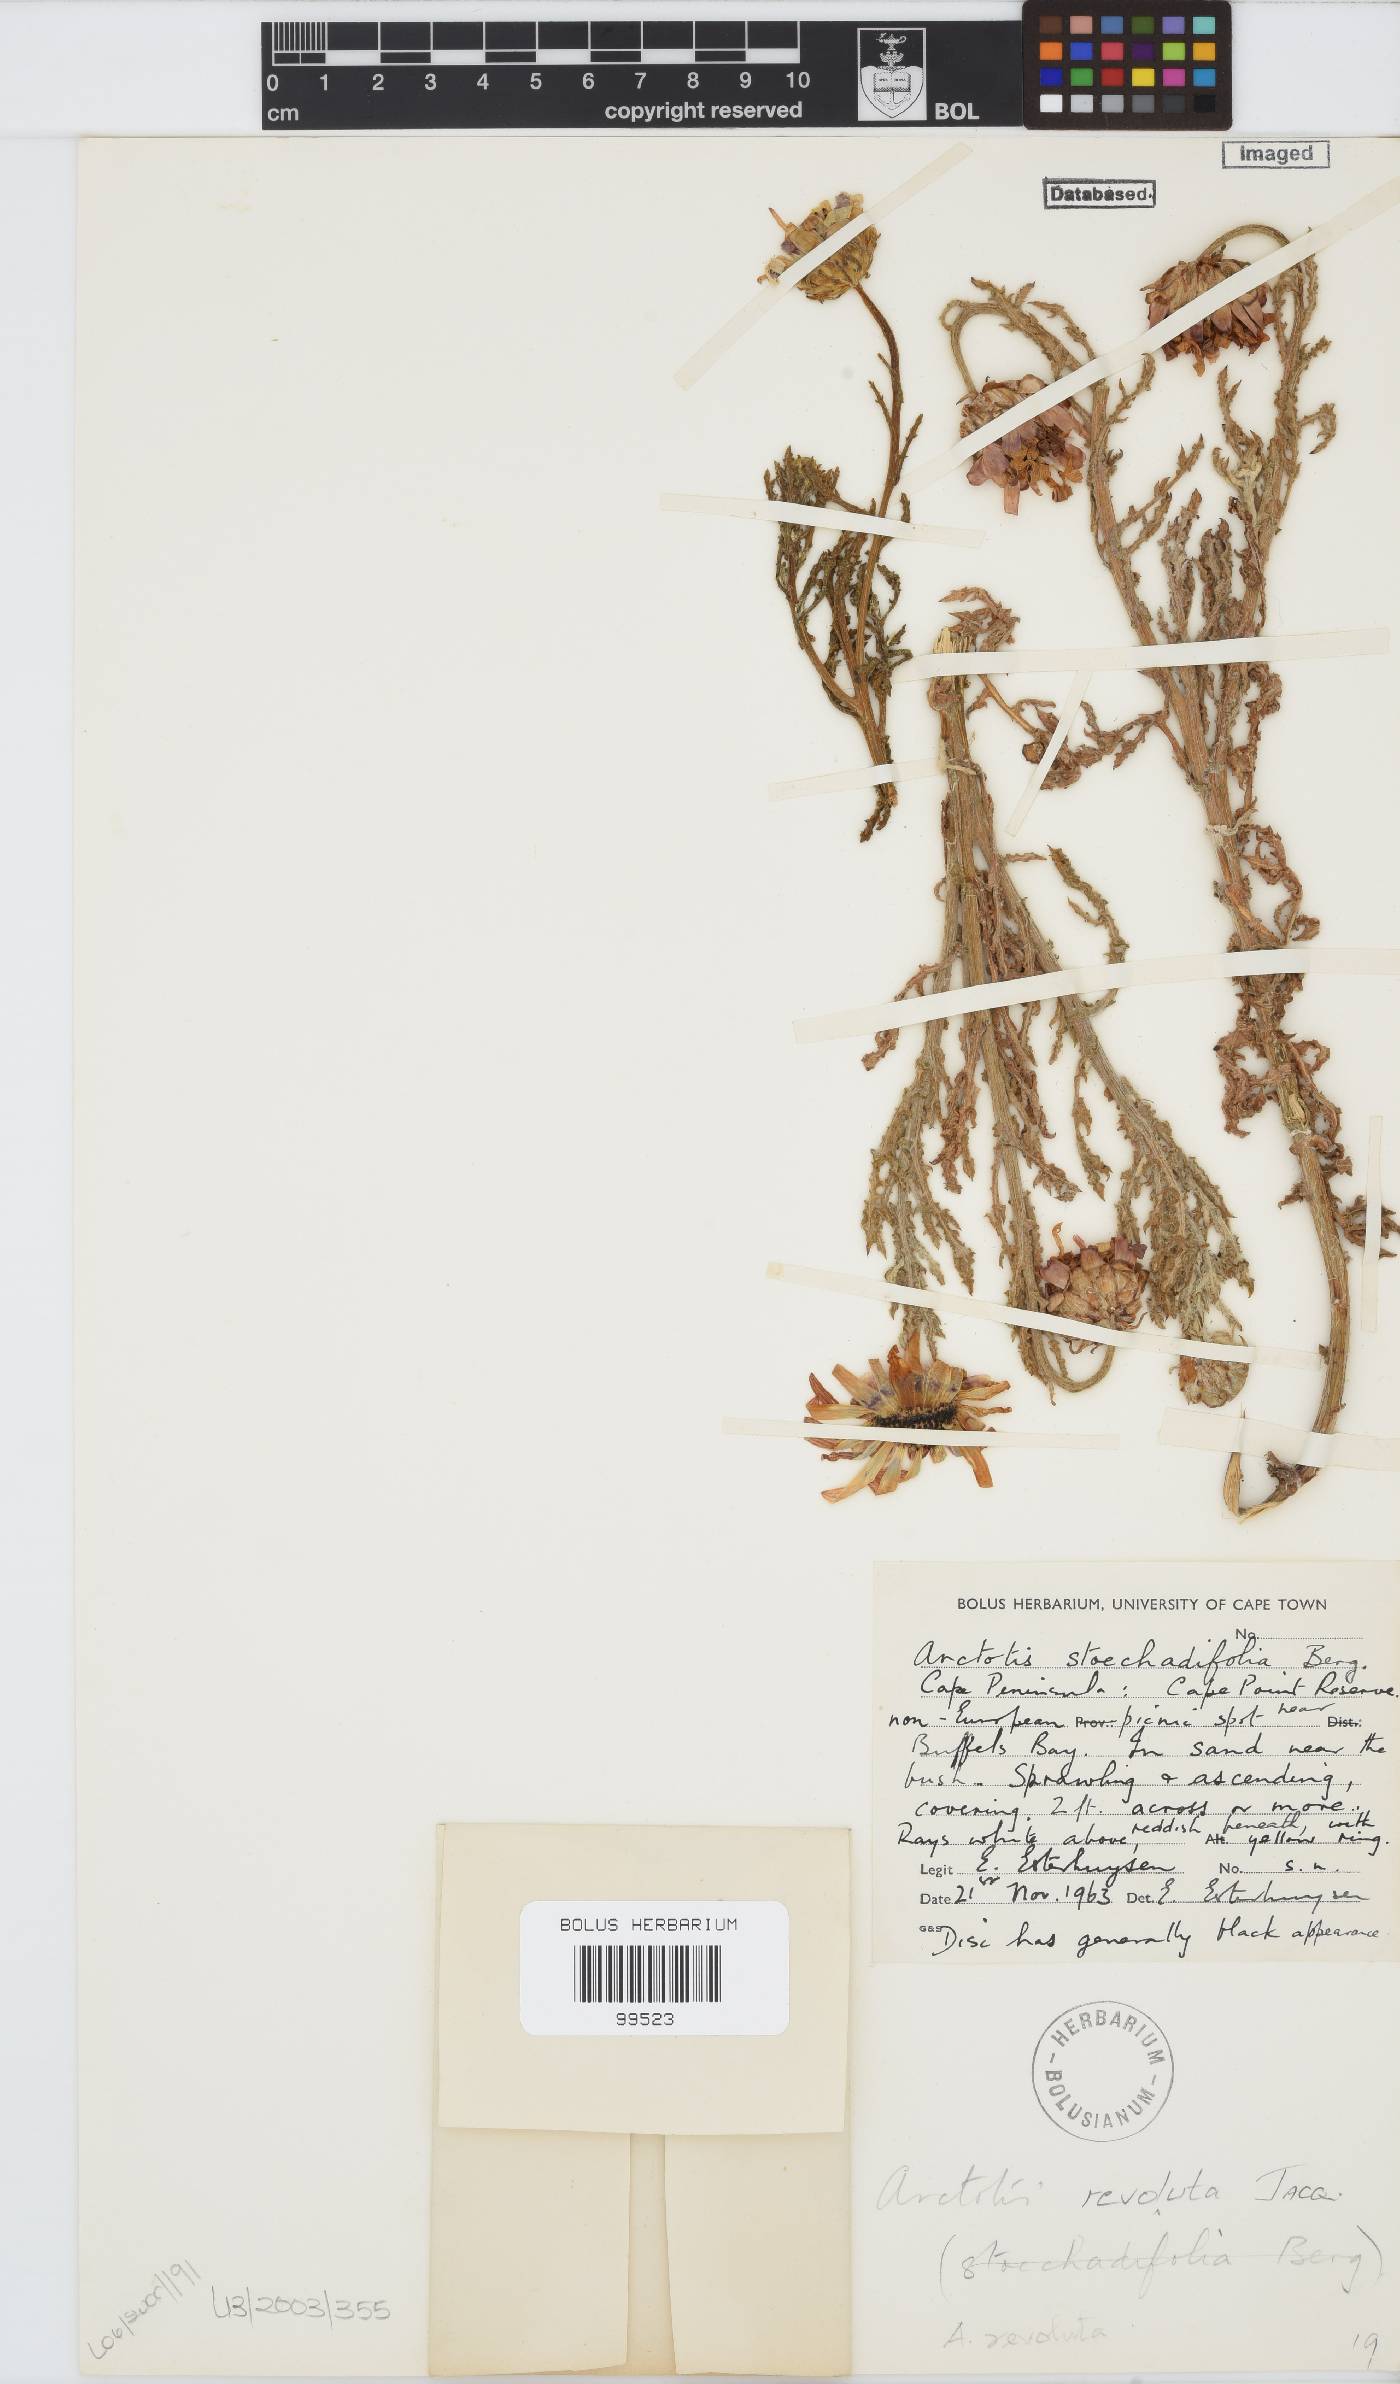 0 1 2 3 4 5 6 7 8 9 10
cm copyright reserved BOL
Imaged
Databased.
BOLUS HERBARIUM, UNIVERSITY OF CAPE TOWN
No.
Arctotis stoechadifolia Berg.
Cape Peninsula: Cape Point Reserve.
non-European Prov. picnic spot near Distr.
Buffels Bay. In sand near the
bush. Sprawling & ascending,
covering 2 ft. across or more.
Rays white above, reddish beneath, with Alt. yellow ring.
Legit E. Esterhuysen No. s.n.
Date 21st Nov. 1963 Det. E. Esterhuysen
G&S Disc has generally black appearance.
BOLUS HERBARIUM
99523
HERBARIUM
BOLUSIANUM
Arctotis revoluta JACQ.
(stoechadifolia Berg)
A. revoluta
U3/2003/355
19